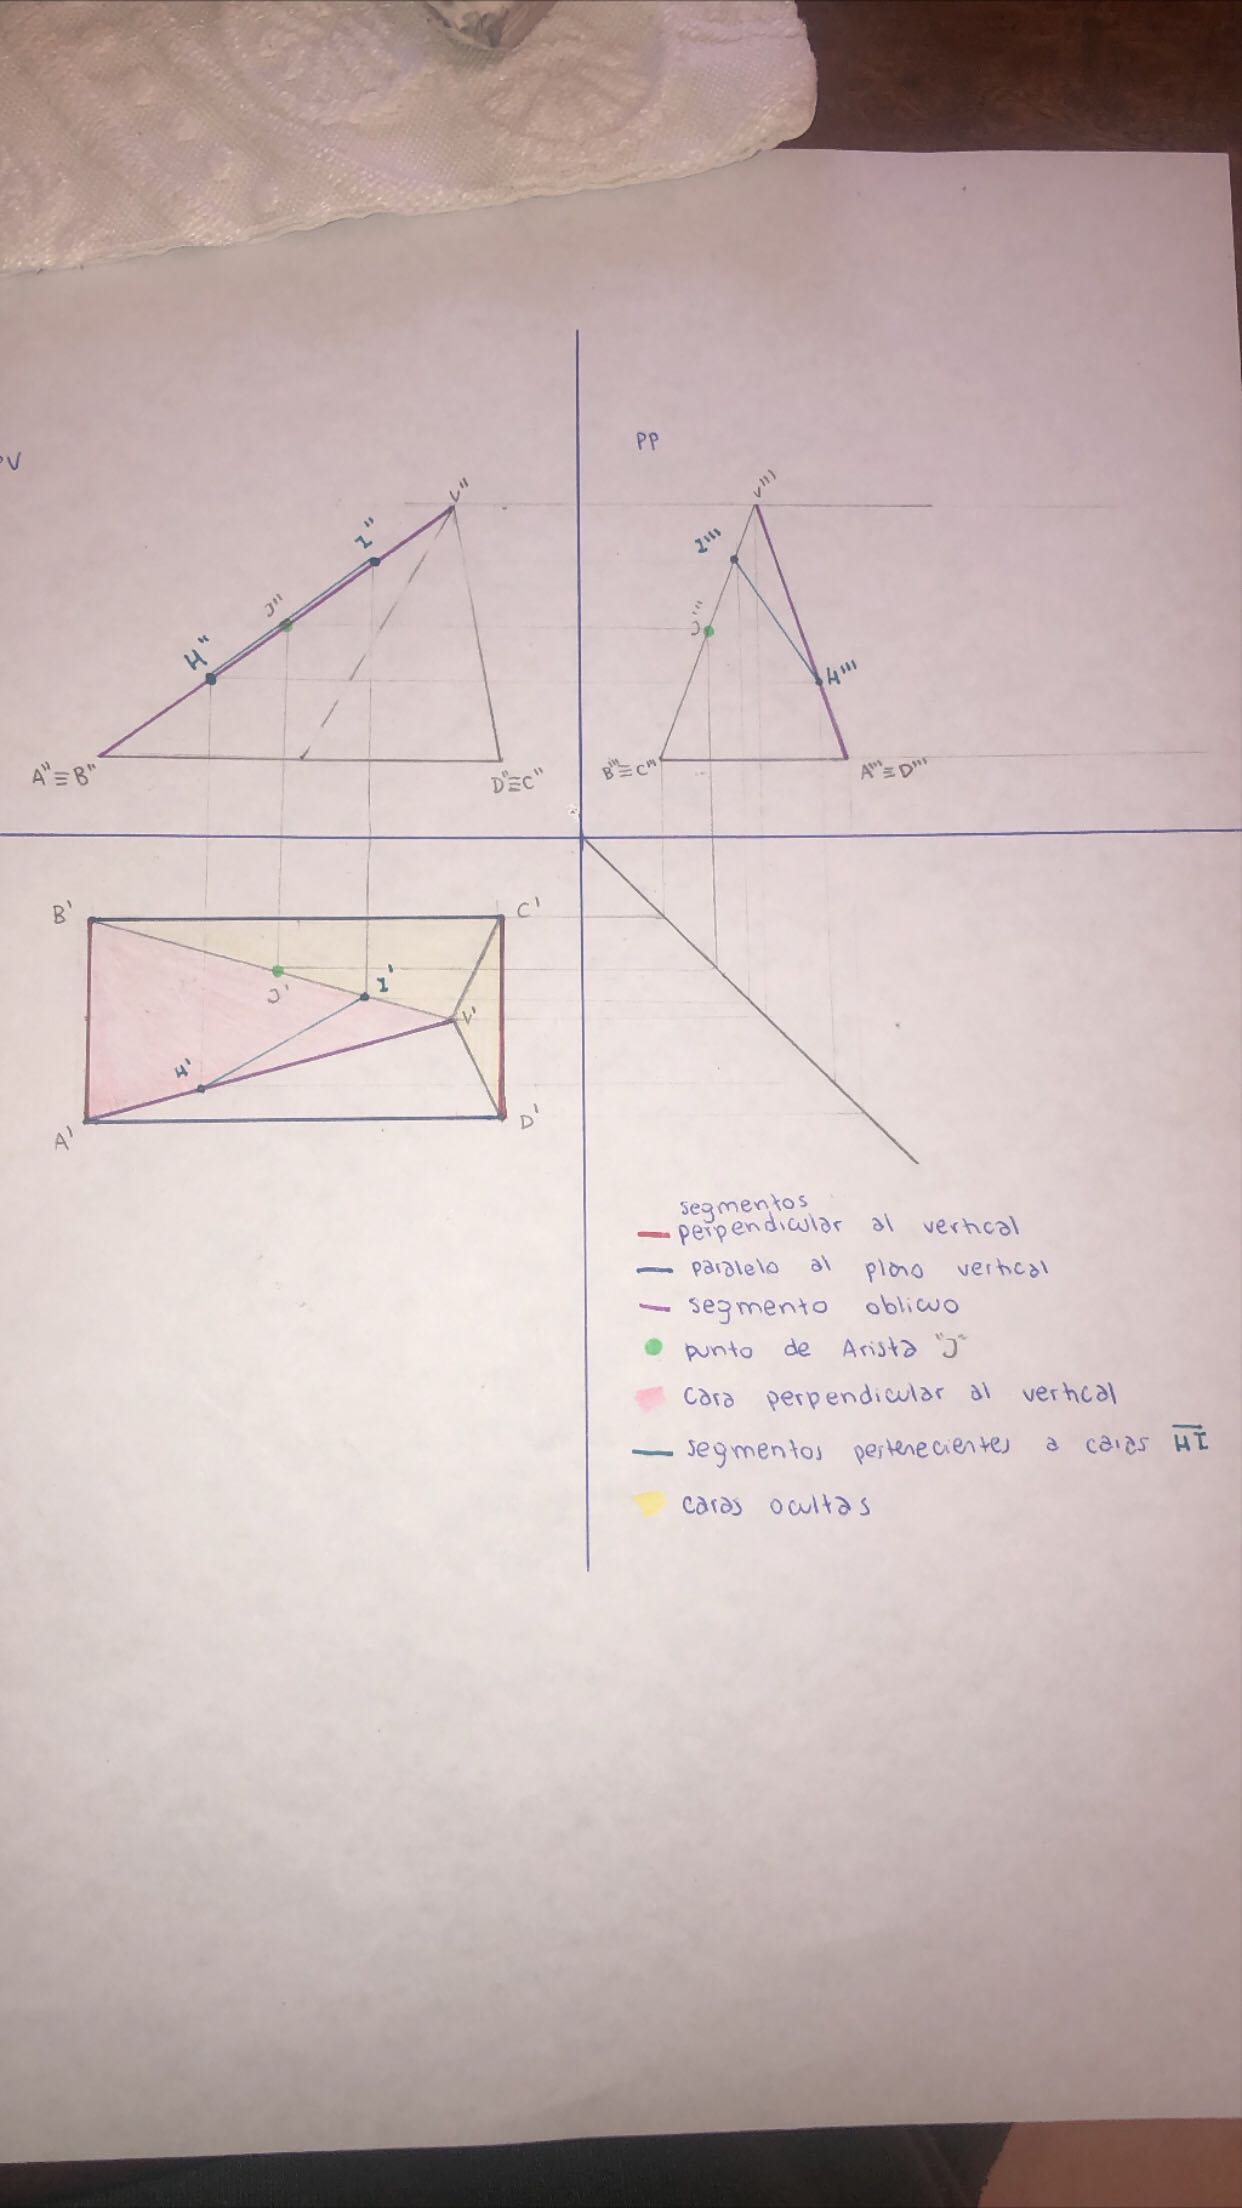 PV
PP
V''
V'''
I''
I'''
J''
J'''
H''
H'''
A''≡B''
D''≡C''
B'''≡C'''
A'''≡D'''
B'
C'
J'
I'
V'
H'
A'
D'
segmentos
perpendicular al vertical
paralelo al plano vertical
segmento oblicuo
punto de Arista "J"
cara perpendicular al vertical
segmentos pertenecientes a caras HI
caras ocultas